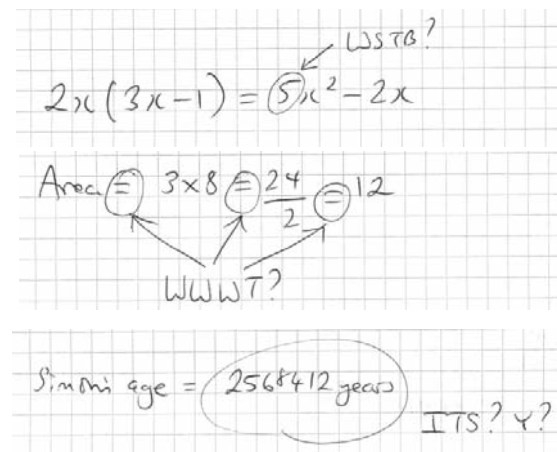 WSTB?
2x(3x-1) = 5x² - 2x
Area = 3×8 = 24/2 = 12
WWWT?
Simon's age = 2568412 years
ITS? Y?